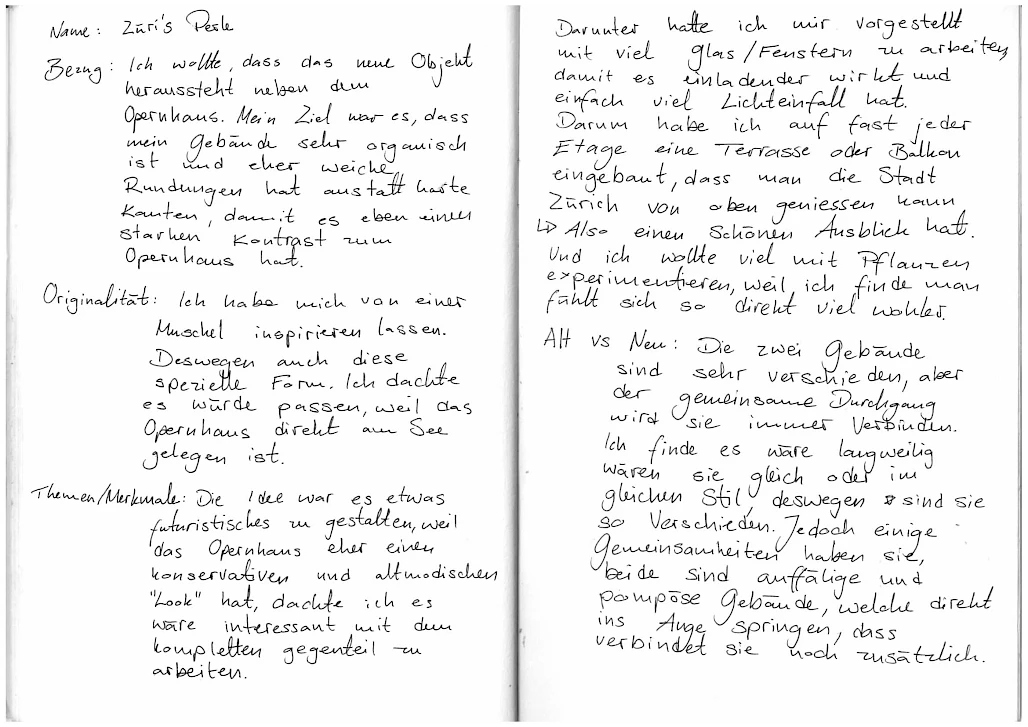 Name: Züri's Perle
Bezug: Ich wollte, dass das neue Objekt
heraussteht neben dem
Opernhaus. Mein Ziel war es, dass
mein Gebäude sehr organisch
ist und eher weiche
Rundungen hat anstatt harte
Kanten, damit es eben einen
starken Kontrast zum
Opernhaus hat.
Originalität: Ich habe mich von einer
Muschel inspirieren lassen.
Deswegen auch diese
spezielle Form. Ich dachte
es würde passen, weil das
Opernhaus direkt am See
gelegen ist.
Themen/Merkmale: Die Idee war es etwas
futuristisches zu gestalten, weil
das Opernhaus eher einen
konservativen und altmodischen
"Look" hat, dachte ich es
wäre interessant mit dem
kompletten gegenteil zu
arbeiten.
Darunter hatte ich mir vorgestellt
mit viel Glas/Fenstern zu arbeiten,
damit es einladender wirkt und
einfach viel Lichteinfall hat.
Darum habe ich auf fast jeder
Etage eine Terrasse oder Balkon
eingebaut, dass man die Stadt
Zürich von oben geniessen kann
↳ Also einen Schönen Ausblick hat.
Und ich wollte viel mit Pflanzen
experimentieren, weil ich finde man
fühlt sich so direkt viel wohler.
Alt vs Neu: Die zwei Gebäude
sind sehr verschieden, aber
der gemeinsame Durchgang
wird sie immer Verbinden.
Ich finde es wäre langweilig
wären sie gleich oder im
gleichen Stil, deswegen sind sie
so Verschieden. Jedoch einige
Gemeinsamheiten haben sie,
beide sind auffälige und
pompöse Gebäude, welche direkt
ins Auge springen, dass
verbindet sie noch zusätzlich.